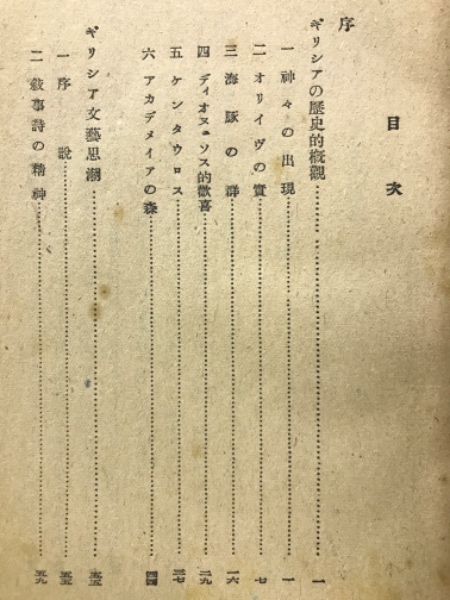 目次
序
ギリシアの歷史的槪觀 一
一 神々の出現 一
二 オリイヴの實 七
三 海豚の群 一六
四 ディオヌュソス的歡喜 二九
五 ケンタウロス 三七
六 アカデメイアの森 四四
ギリシア文藝思潮 五五
一 序說 五五
二 敍事詩の精神 五九